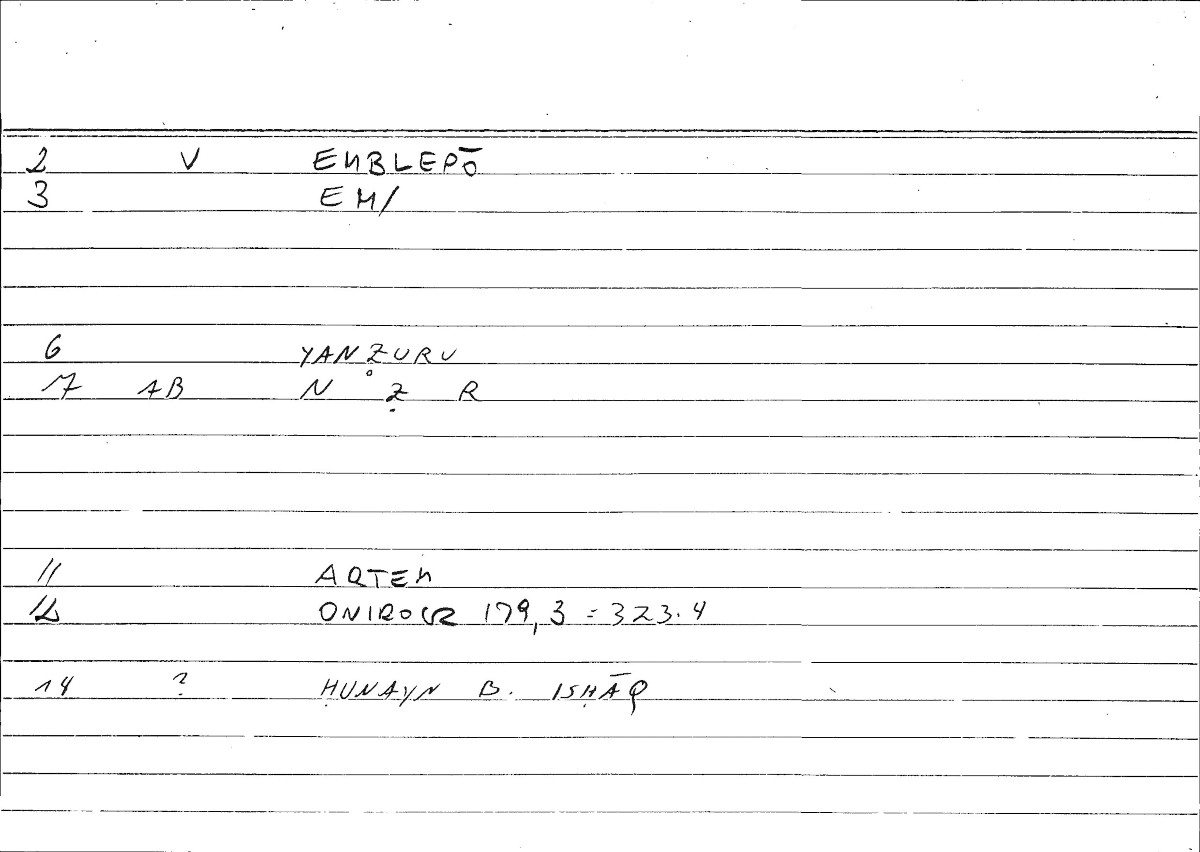 2 V EMBLEPŌ
3 EM/
6 YANẒURU
7 AB N Ẓ R
11 ARTEM
12 ONIROCR 179,3 = 323.4
14 ? ḤUNAYN B. ISḤĀQ